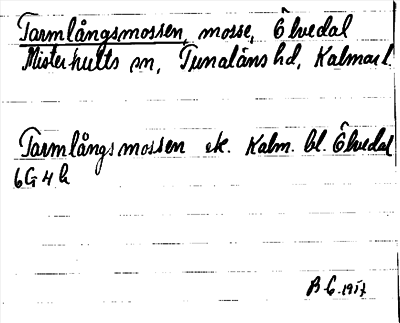 Tarmlångsmossen, mosse, Ölvedal
Misterhults sn, Tunaläns hd, Kalmar l.
Tarmlångsmossen ek. Kalm. bl. Ölvedal
6G 4 h
B G. 1957